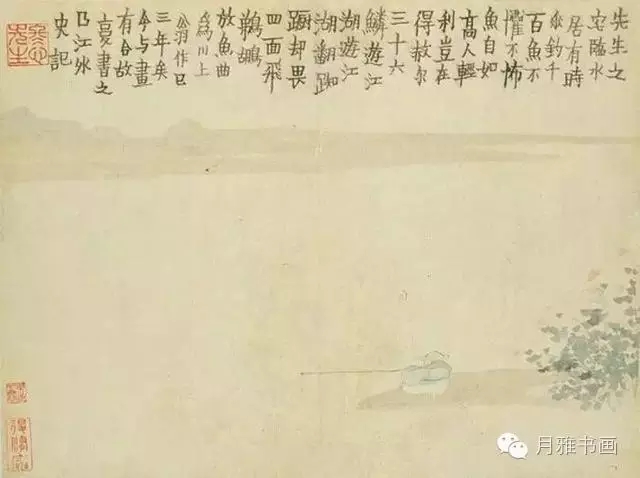 先生之
宅臨水
居有時
垂釣千
百魚不
懼不怖
魚自如
高人輕
利豈在
得赦尔
三十六
鱗遊江
湖遊江
湖翻踟
蹰却畏
四面飛
鵜鶘
放魚曲
為川上
翁作已
三年矣
今与畫
有合故
書之
江外
史記
冬心先生
月雅书画